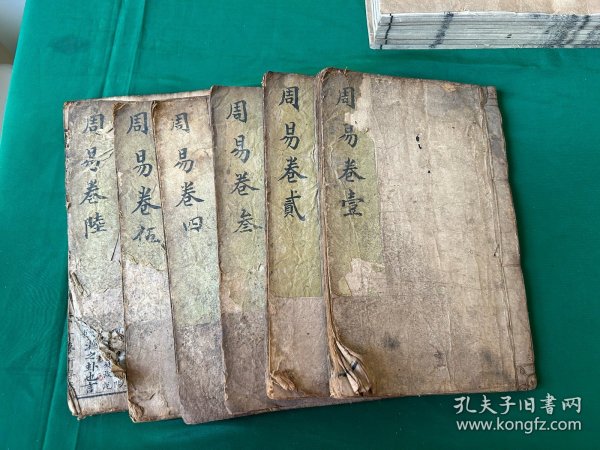 周易卷壹
周易卷貳
周易卷叁
周易卷四
周易卷伍
周易卷陸
之卦也言
孔夫子旧书网
www.kongfz.com